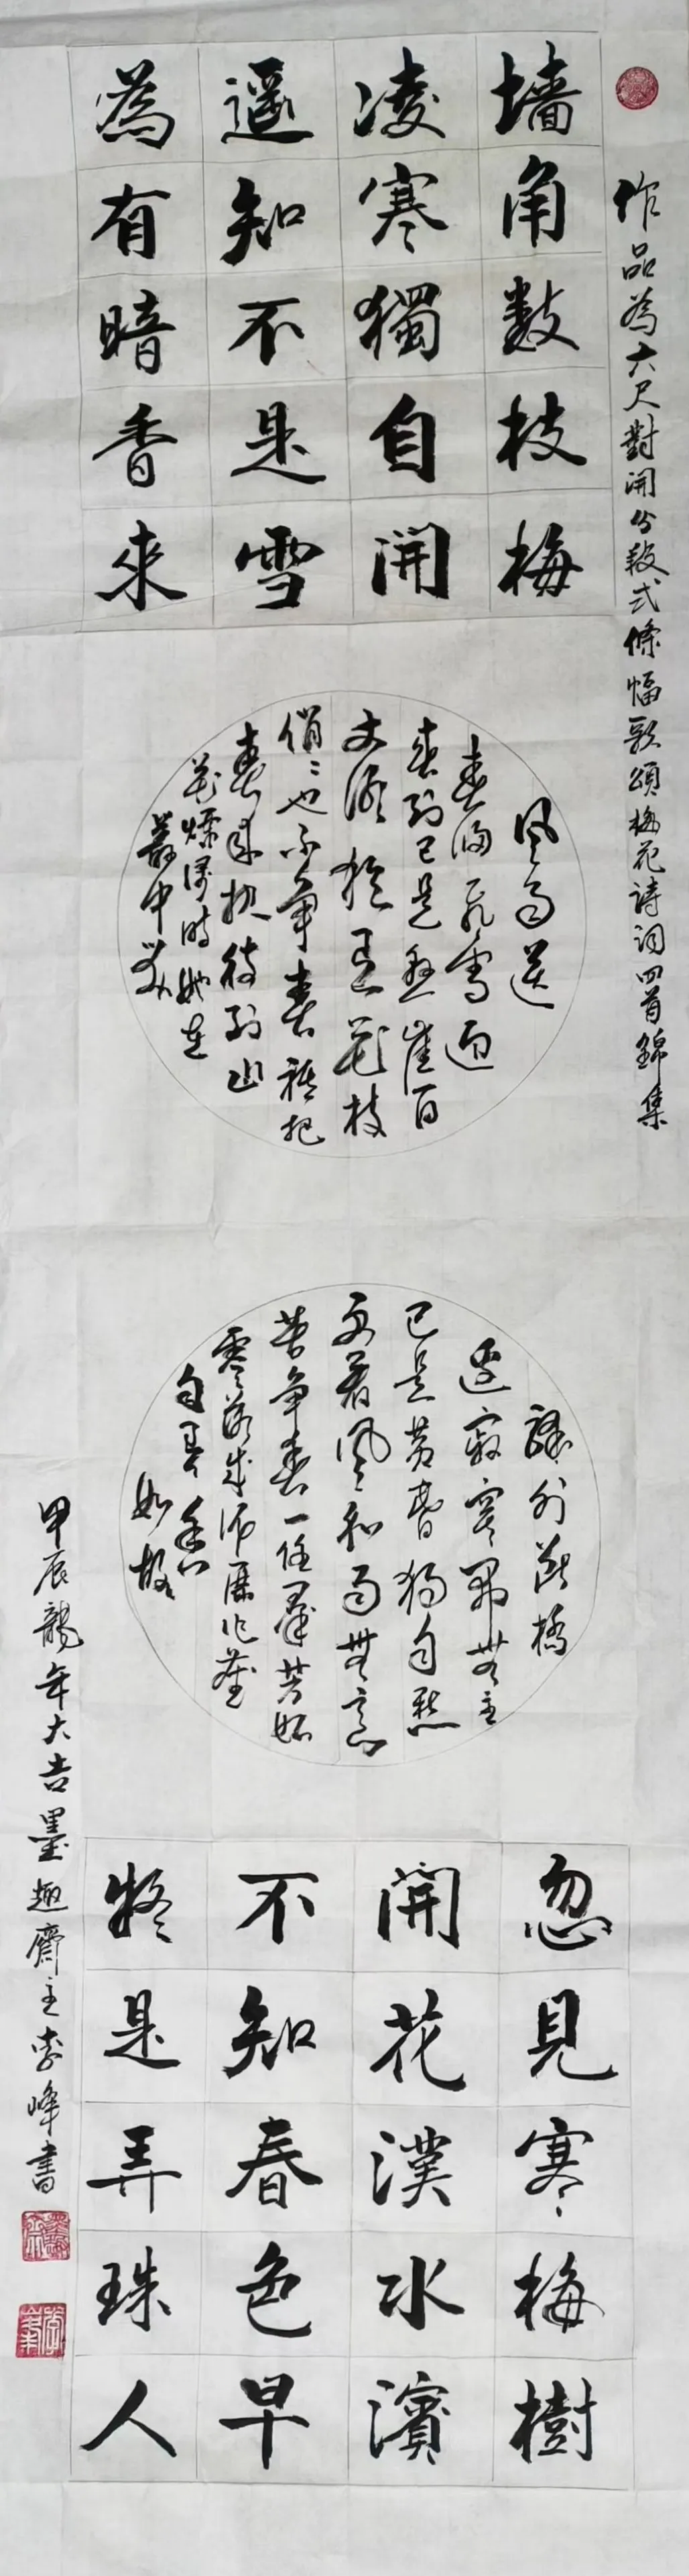 作品為六尺對開分段式條幅歌頌梅花詩詞四首錦集
墙角數枝梅
凌寒獨自開
遥知不是雪
為有暗香來
風雨送
春歸飛雪迎
春到已是懸崖百
丈冰猶有花枝
俏俏也不争春祗把
春來報待到山
花爛漫時她在
叢中笑
驛外斷橋
邊寂寞開無主
已是黄昏獨自愁
更著風和雨無意
苦争春一任羣芳妬
零落成泥碾作塵
自有香
如故
忽見寒梅樹
開花漢水濱
不知春色早
疑是弄珠人
甲辰龍年大吉墨趣齋主李峰書